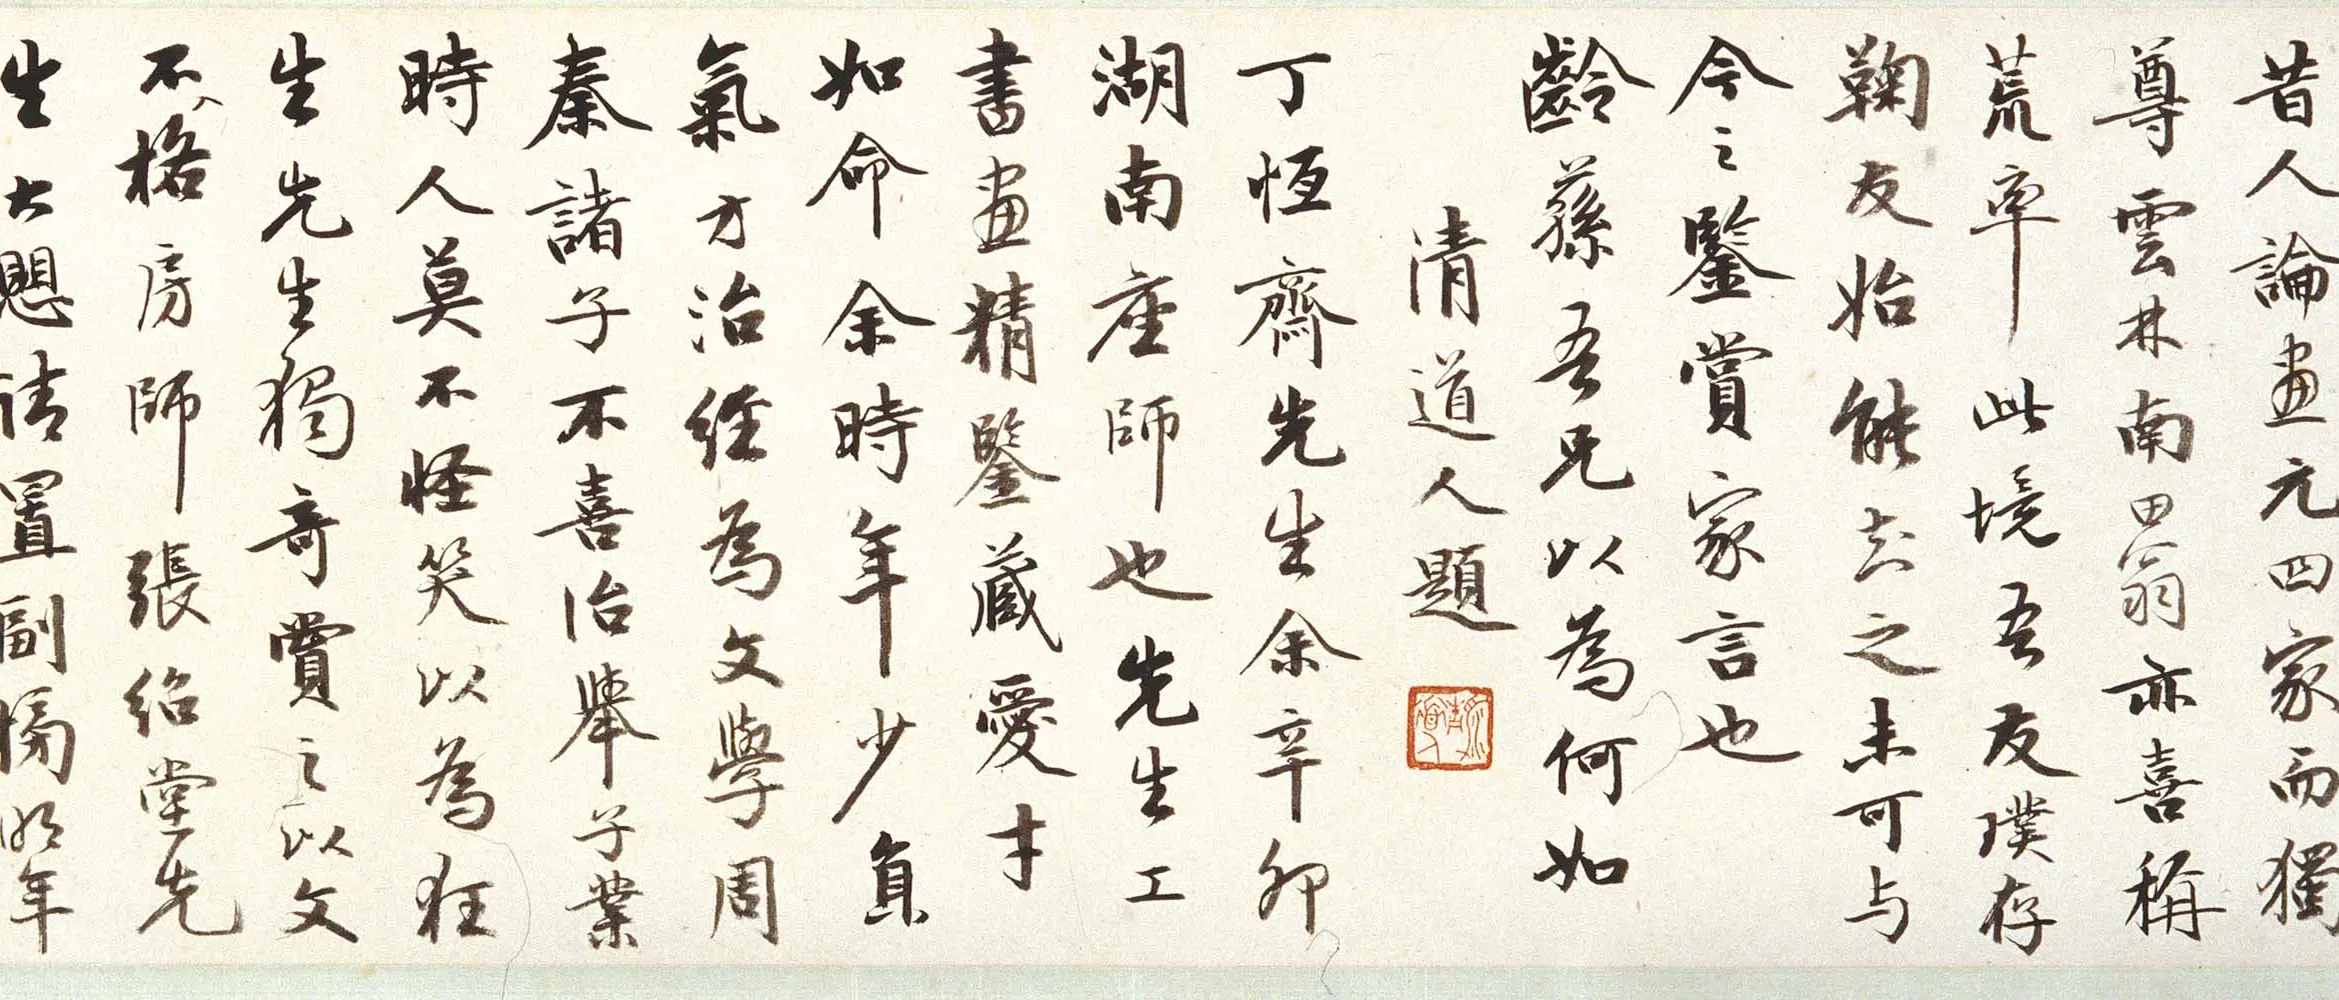 昔人論畫元四家而獨
尊雲林南田翁亦喜稱
荒率此境吾友璞存
鞠友始能知之未可与
今之鑒賞家言也
齡蓀吾兄以為何如如
清道人題
丁恆齋先生余辛卯
湖南座師也先生工
書畫精鑒藏愛才
如命余時年少負
氣方治經為文學周
秦諸子不喜治舉子業
時人莫不怪笑以為狂
生先生獨奇賞之以文
不入格房師張紹堂先
生大愳请置副榜明年